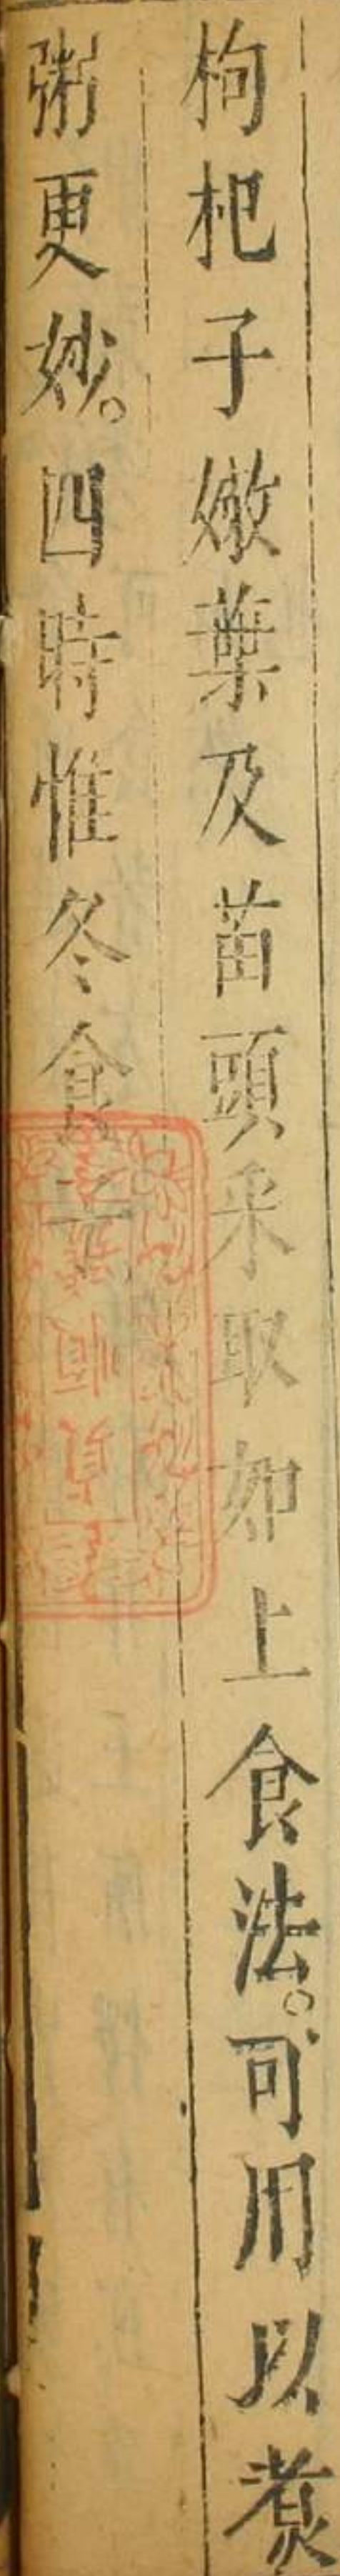 枸杞子嫩葉及苗頭采取如上食法。可用以煮
粥更妙。四時惟冬食子。